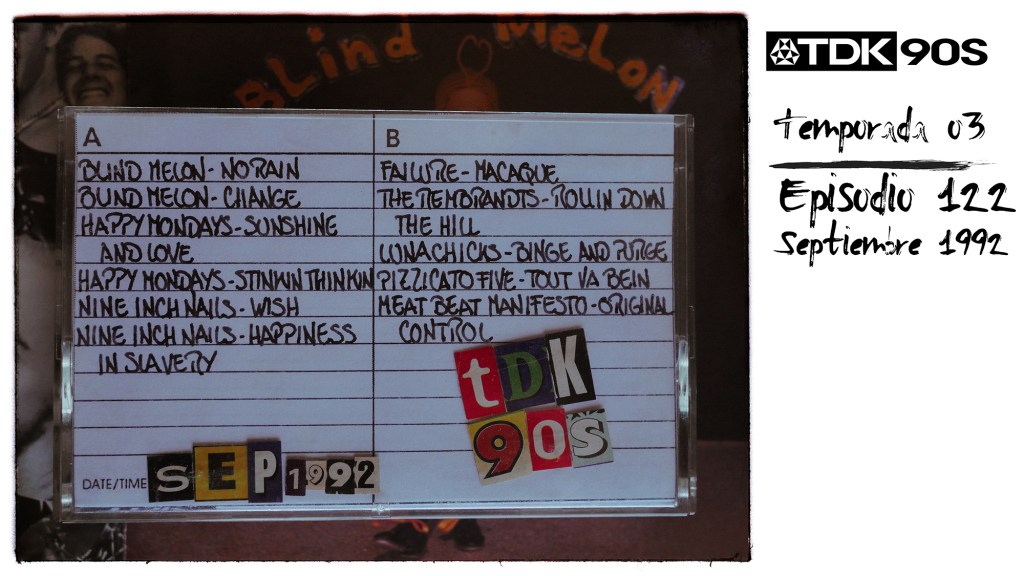 BLIND MELON
A
BLIND MELON - NO RAIN
BLIND MELON - CHANGE
HAPPY MONDAYS - SUNSHINE
AND LOVE
HAPPY MONDAYS - STINKIN THINKIN
NINE INCH NAILS - WISH
NINE INCH NAILS - HAPPINESS
IN SLAVERY
DATE/TIME SEP 1992
B
FAILURE - MACAQUE
THE REMBRANDTS - ROLLIN DOWN
THE HILL
LUNACHICKS - BINGE AND PURGE
PIZZICATO FIVE - TOUT VA BEIN
MEAT BEAT MANIFESTO - ORIGINAL
CONTROL
tDK
90s
TDK 90S
temporada 03
Episodio 122
Septiembre 1992